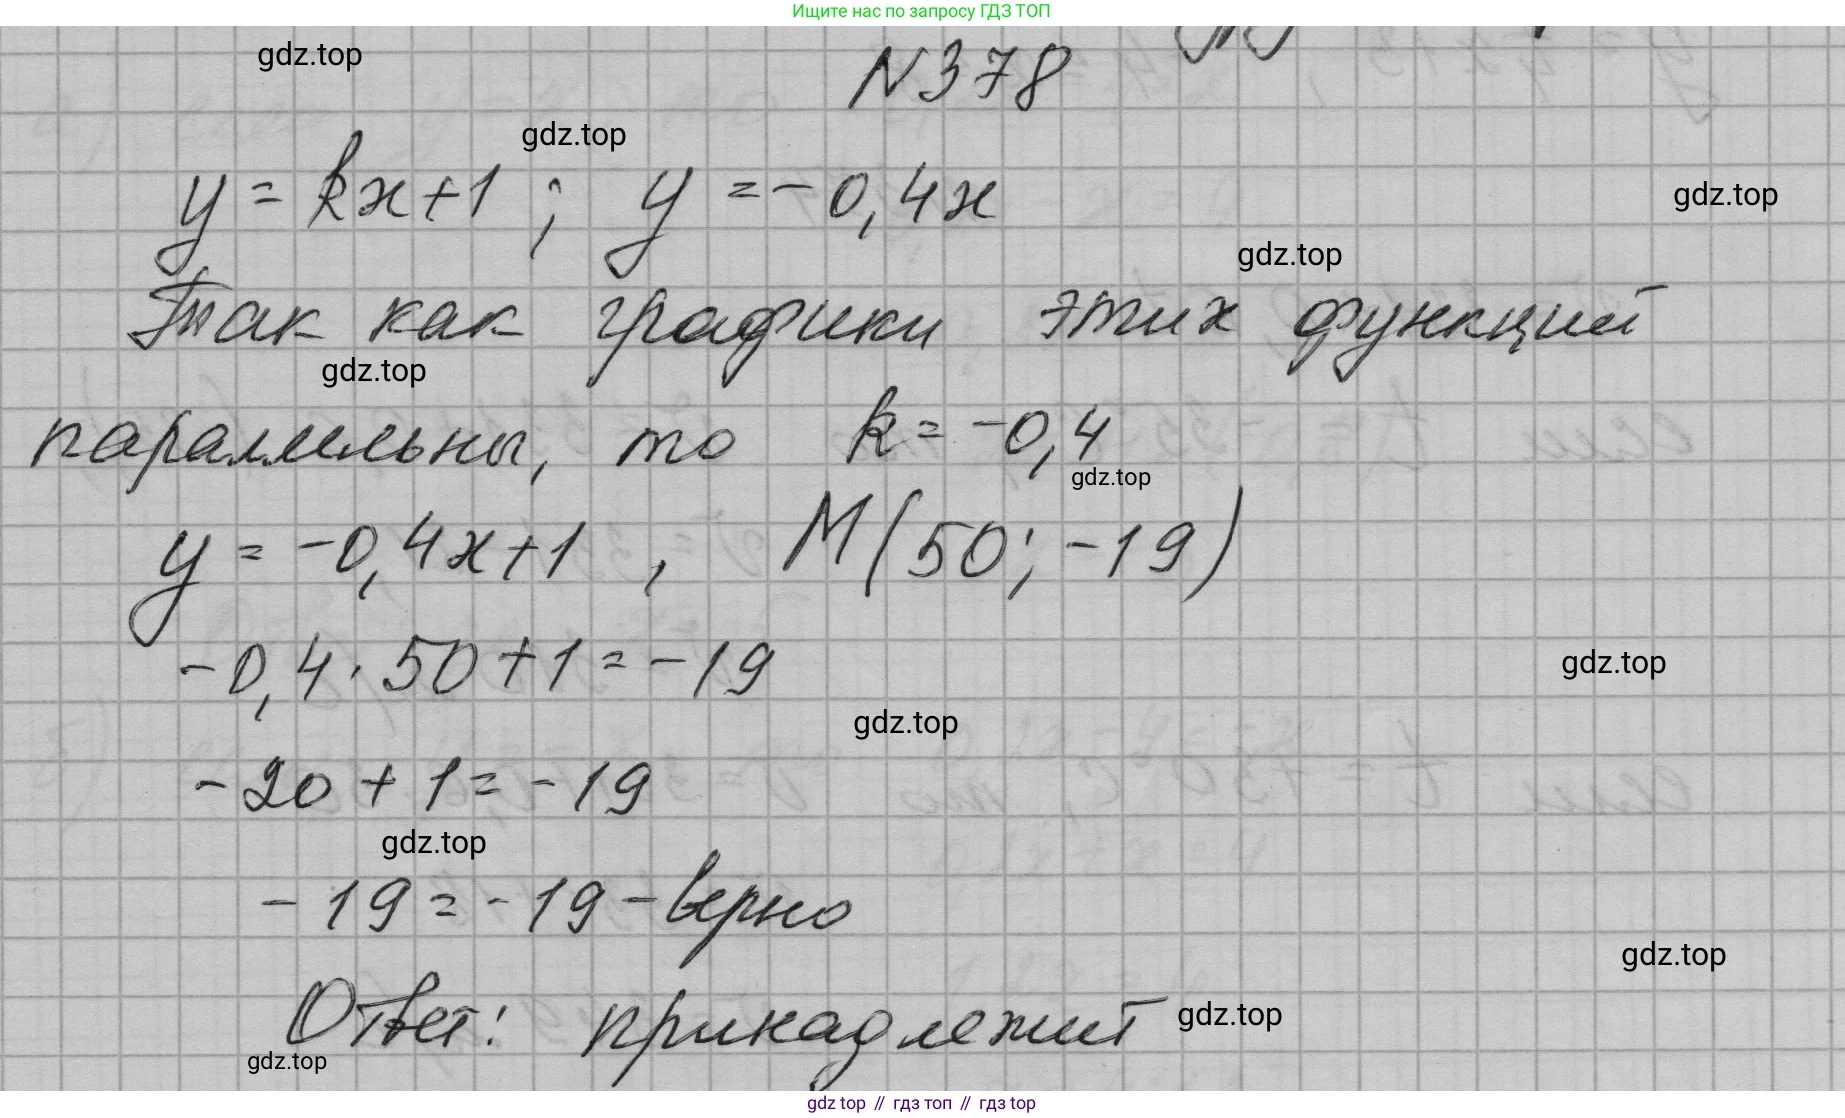 Ищите нас по запросу ГДЗ ТОП
gdz.top
N378
gdz.top
y = kx+1 ; y = -0,4x
gdz.top
gdz.top
Так как графики этих функций
gdz.top
параллельны, то k = -0,4
gdz.top
y = -0,4x+1 , M(50; -19)
-0,4 · 50 + 1 = -19
gdz.top
gdz.top
-20 + 1 = -19
gdz.top
-19 = -19 - верно
gdz.top
Ответ: принадлежит
gdz.top
gdz.top
gdz.top // гдз топ // гдз top